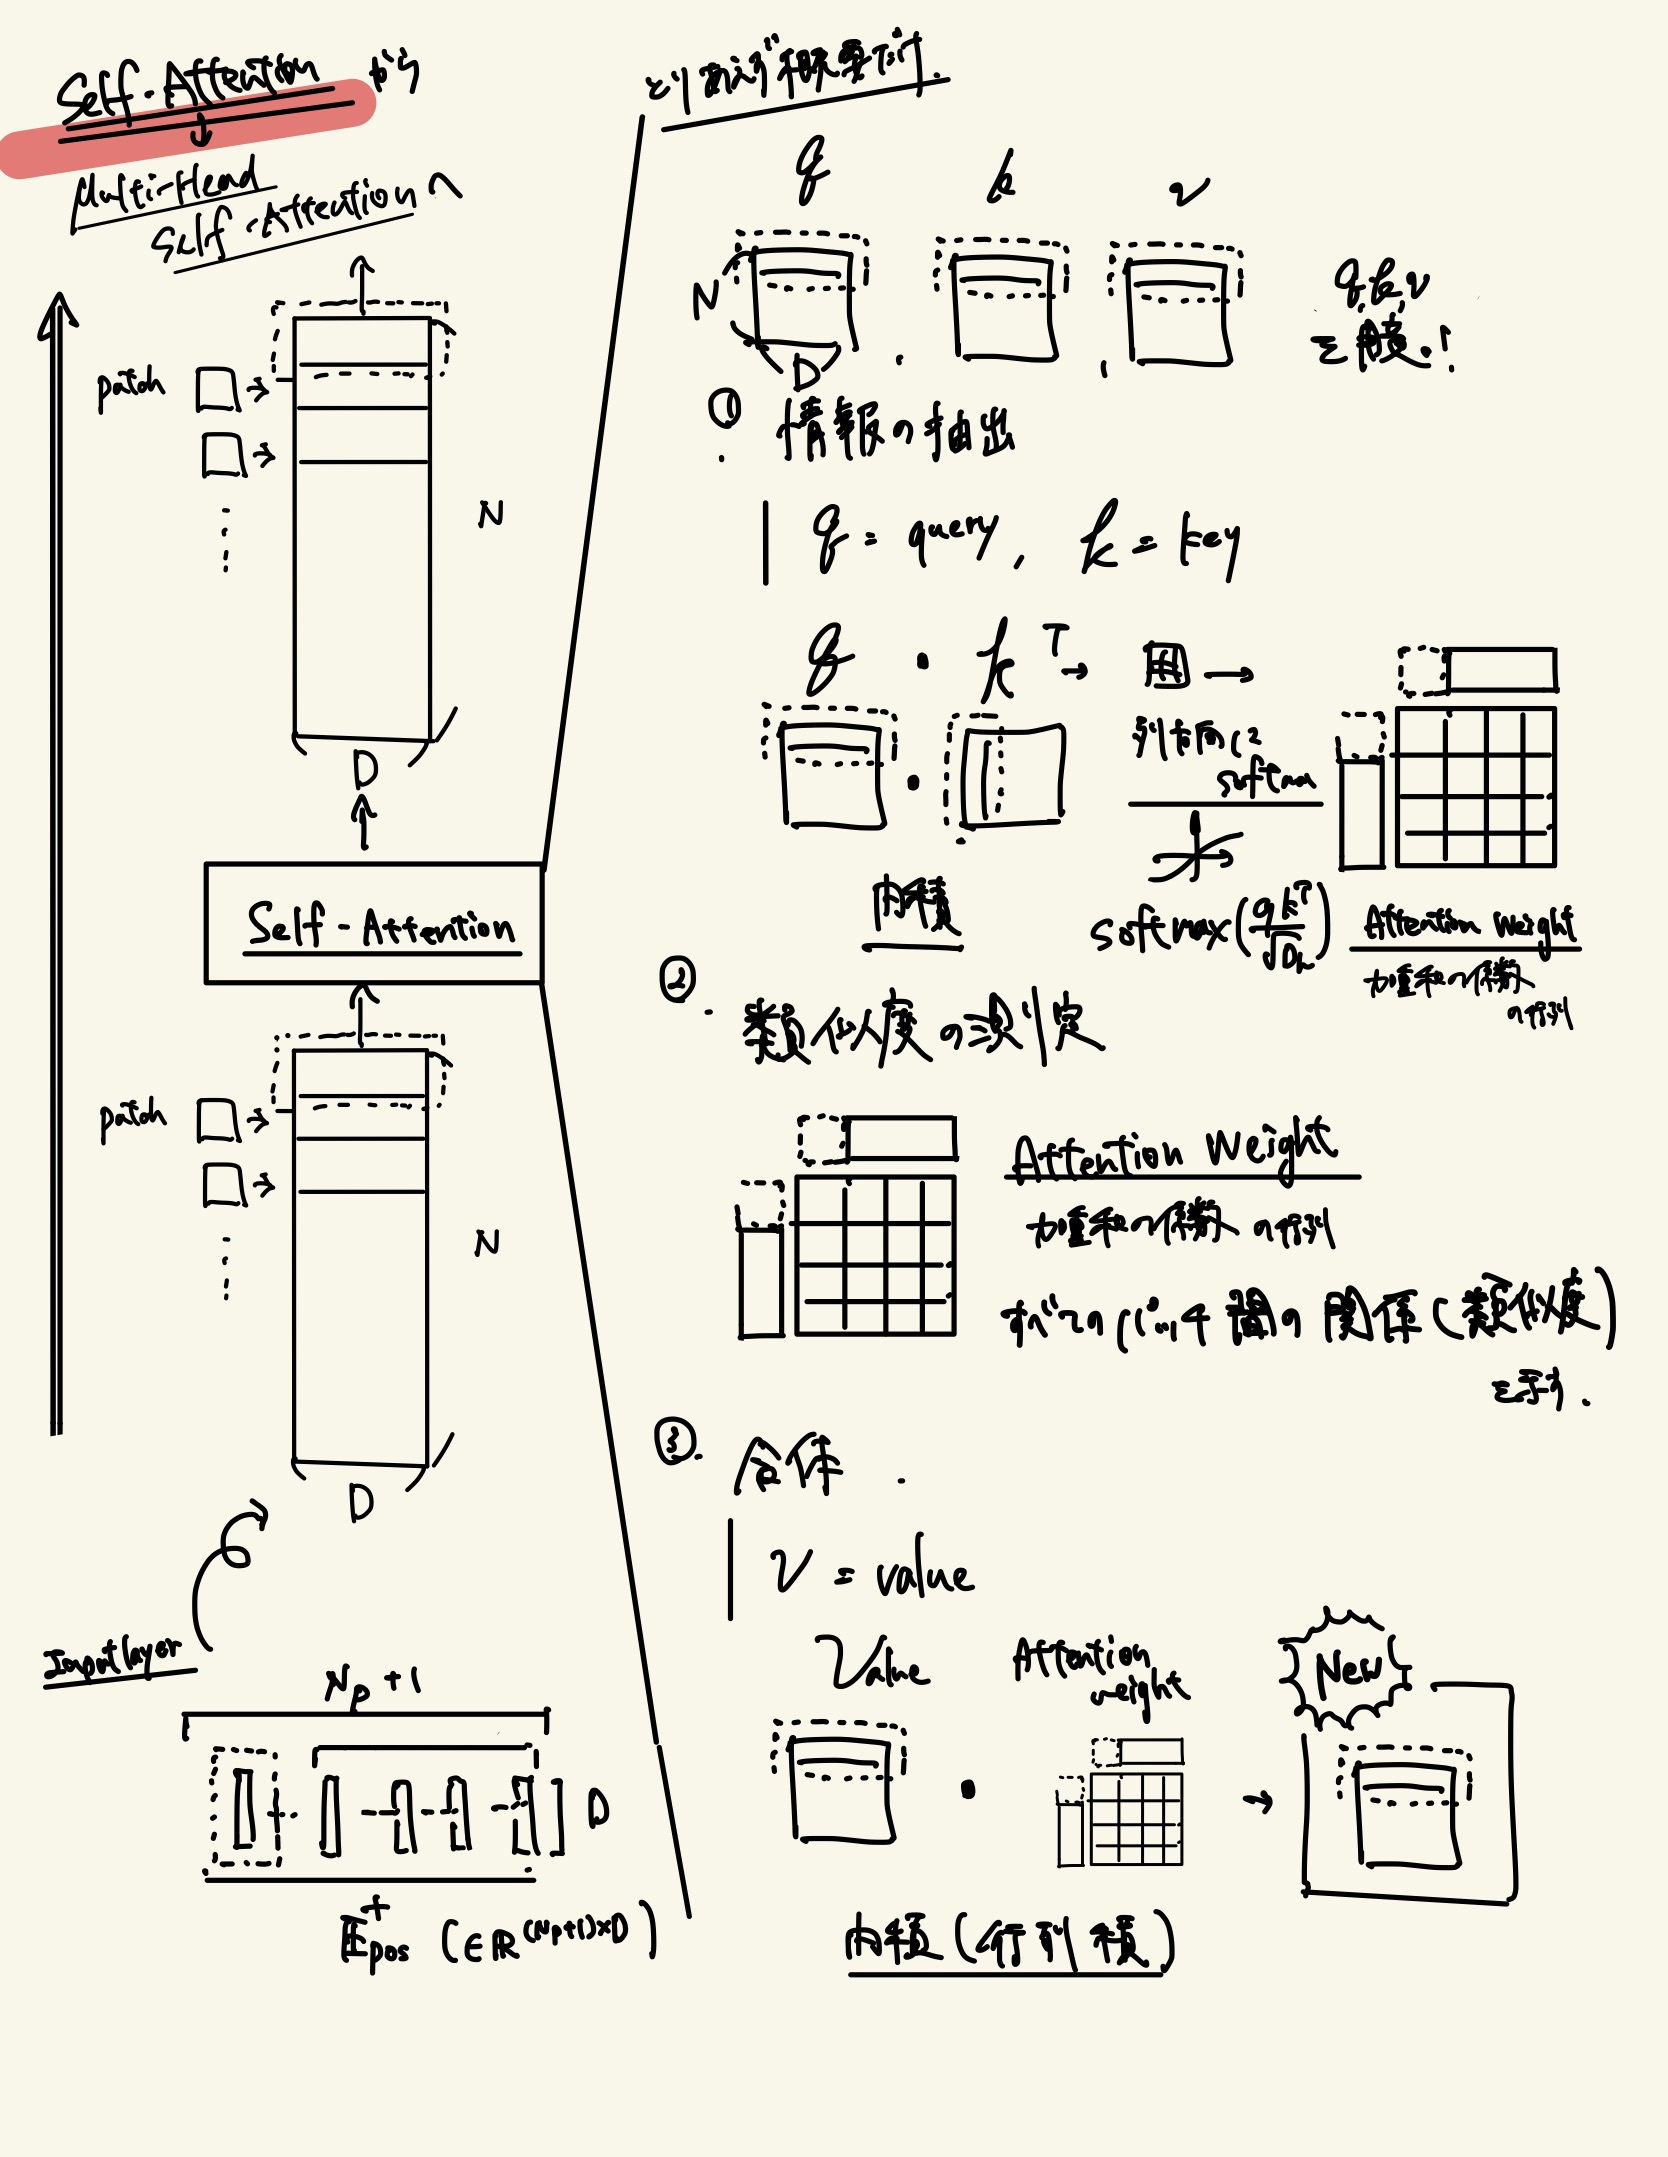 Self-Attention から
↓
Multi-Head
Self-Attention へ
patch
N
D
Self-Attention
patch
N
D
Input layer
Np+1
D
+
Epos (∈R^(Np+1)×D)
q k v
N
D
q,k,v
①. 情報の抽出
q = query, k = key
q・k^T → →
列方向に
softmax
内積
softmax(qk^T/√Dk)
Attention Weight
加重和の係数
の行列
②. 類似度の測定
Attention Weight
加重和の係数の行列
すべてのパッチ間の関係(類似度)
を示す.
③. 合体.
v = value
Value
Attention
weight
New
→
内積(行列積)